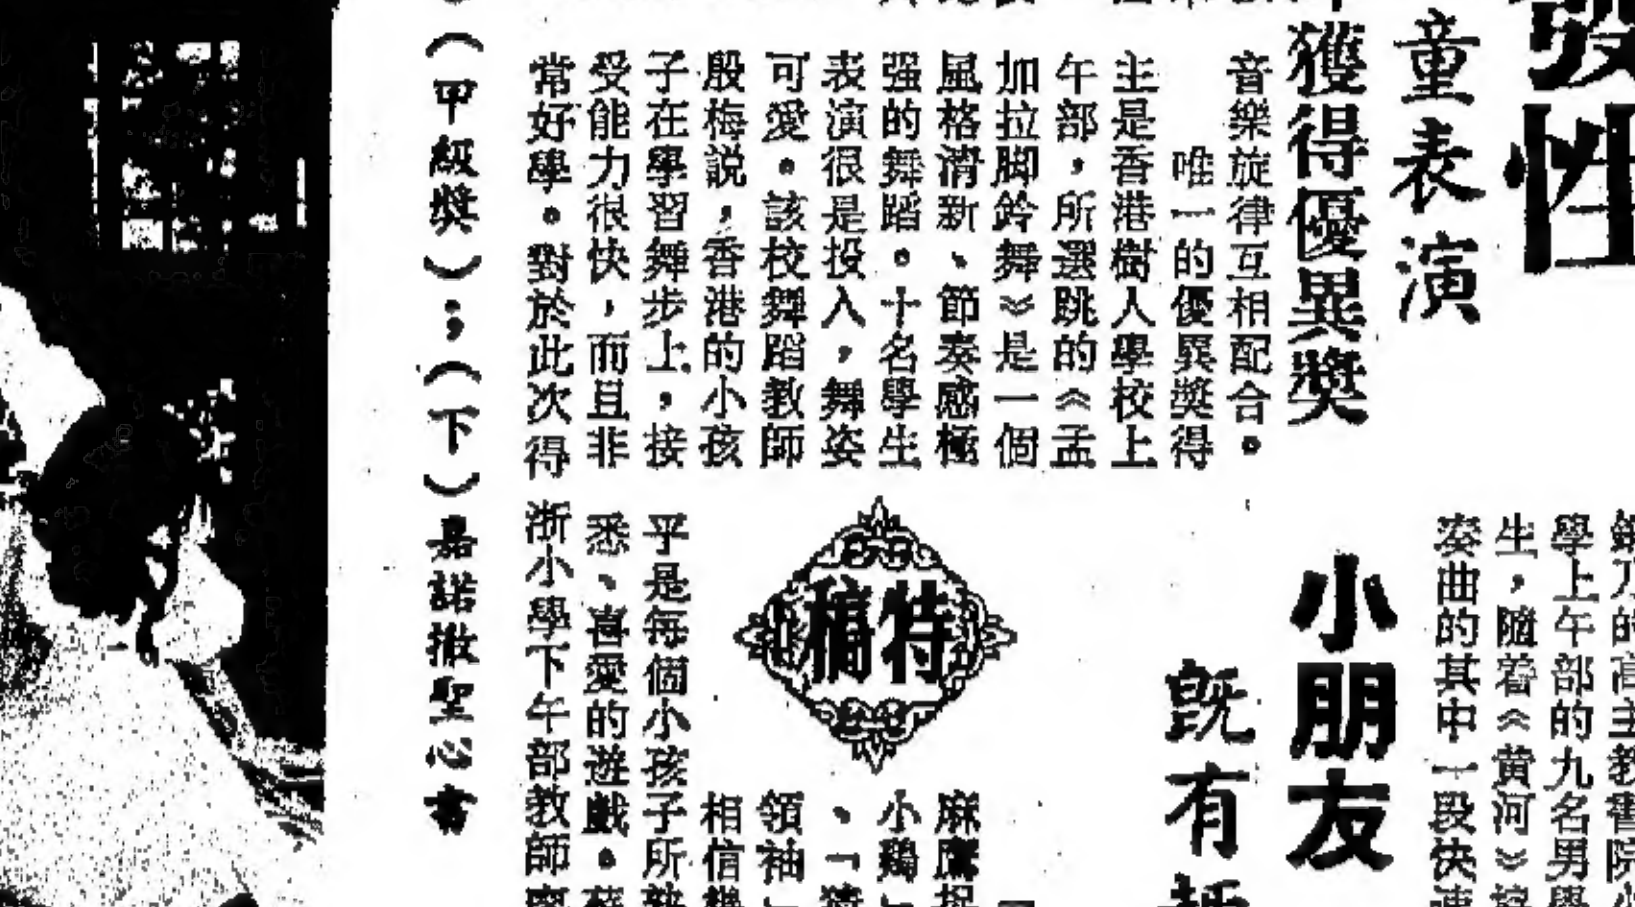 發性
童表演
獲得優異獎
音樂旋律互相配合。
唯一的優異獎得
主是香港樹人學校上
午部，所選跳的《孟
加拉脚鈴舞》是一個
風格清新、節奏感極
强的舞蹈。十名學生
表演很是投入，舞姿
可愛。該校舞蹈教師
殷梅説，香港的小孩
子在學習舞步上，接
受能力很快，而且非
常好學。對於此次得
（甲級獎）；（下）嘉諾撒聖心書
乃的高主教書院
學上午部的九名男學
生，隨着《黄河》
奏曲的其中一段快速
小朋友
既有
特稿
麻鷹捉
小鷄
、「
領袖」
相信幾
乎是每個小孩子所熟
悉、喜愛的遊戲。蘇
浙小學下午部教師